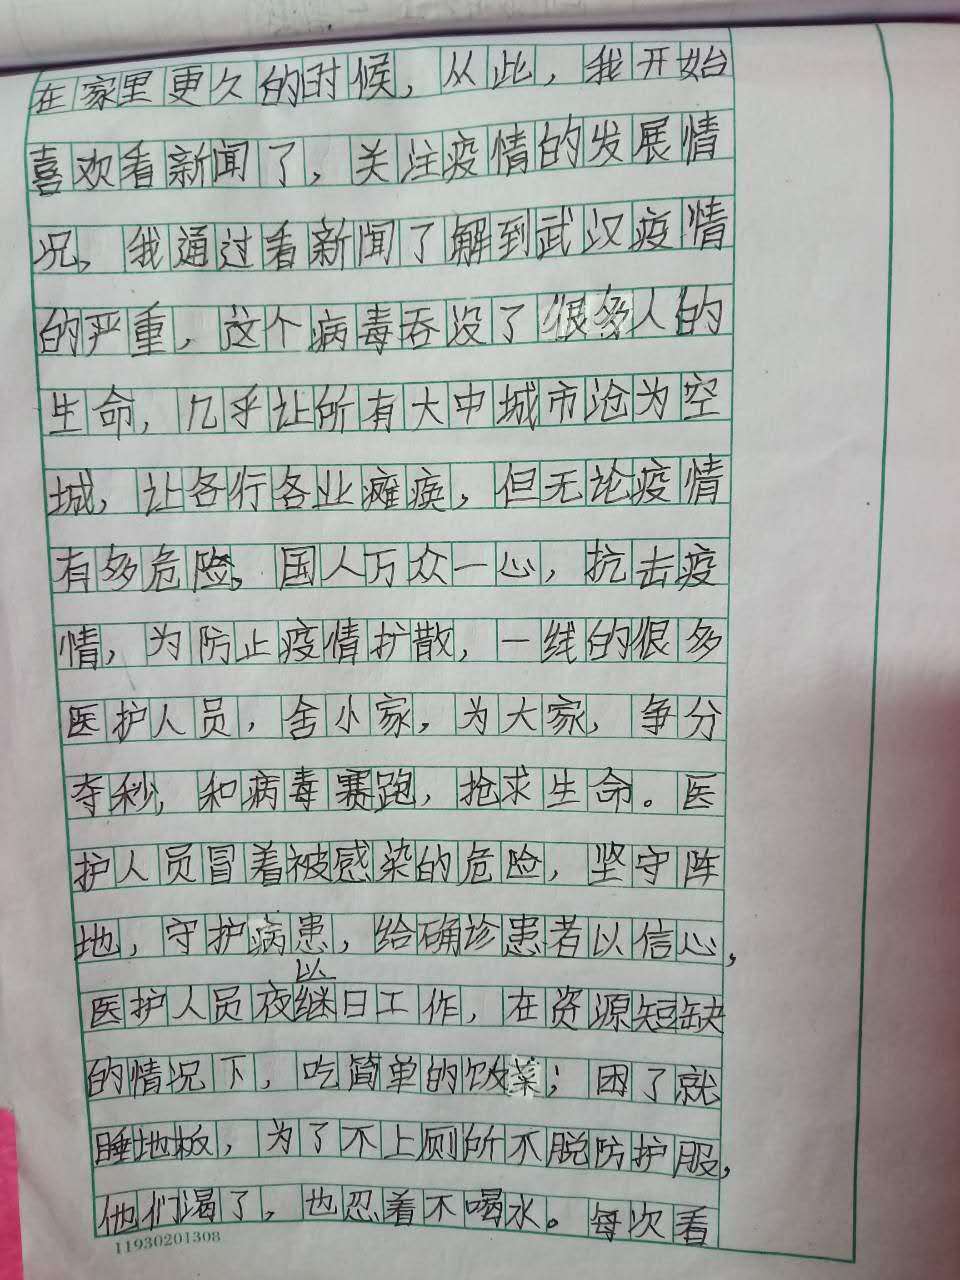 在家里更久的时候，从此，我开始
喜欢看新闻了，关注疫情的发展情
况。我通过看新闻了解到武汉疫情
的严重，这个病毒吞没了很多人的
生命，几乎让所有大中城市沧为空
城，让各行各业瘫痪，但无论疫情
有多危险。国人万众一心，抗击疫
情，为防止疫情扩散，一线的很多
医护人员，舍小家，为大家，争分
夺秒，和病毒赛跑，抢求生命。医
护人员冒着被感染的危险，坚守阵
地，守护病患，给确诊患者以信心，
医护人员夜以继日工作，在资源短缺
的情况下，吃简单的饭菜；困了就
睡地板，为了不上厕所不脱防护服，
他们渴了，也忍着不喝水。每次看
11930201308